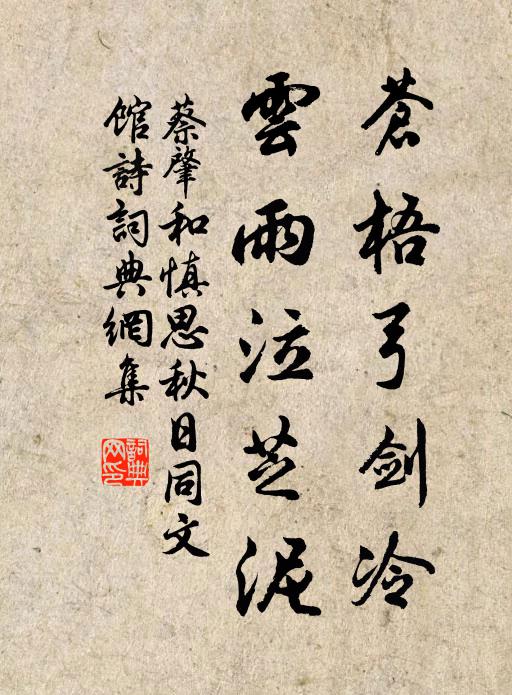 蒼梧弓劍冷
雲雨泣芝泥
蔡肇和慎思秋日同文
館詩詞典網集
詞典網印